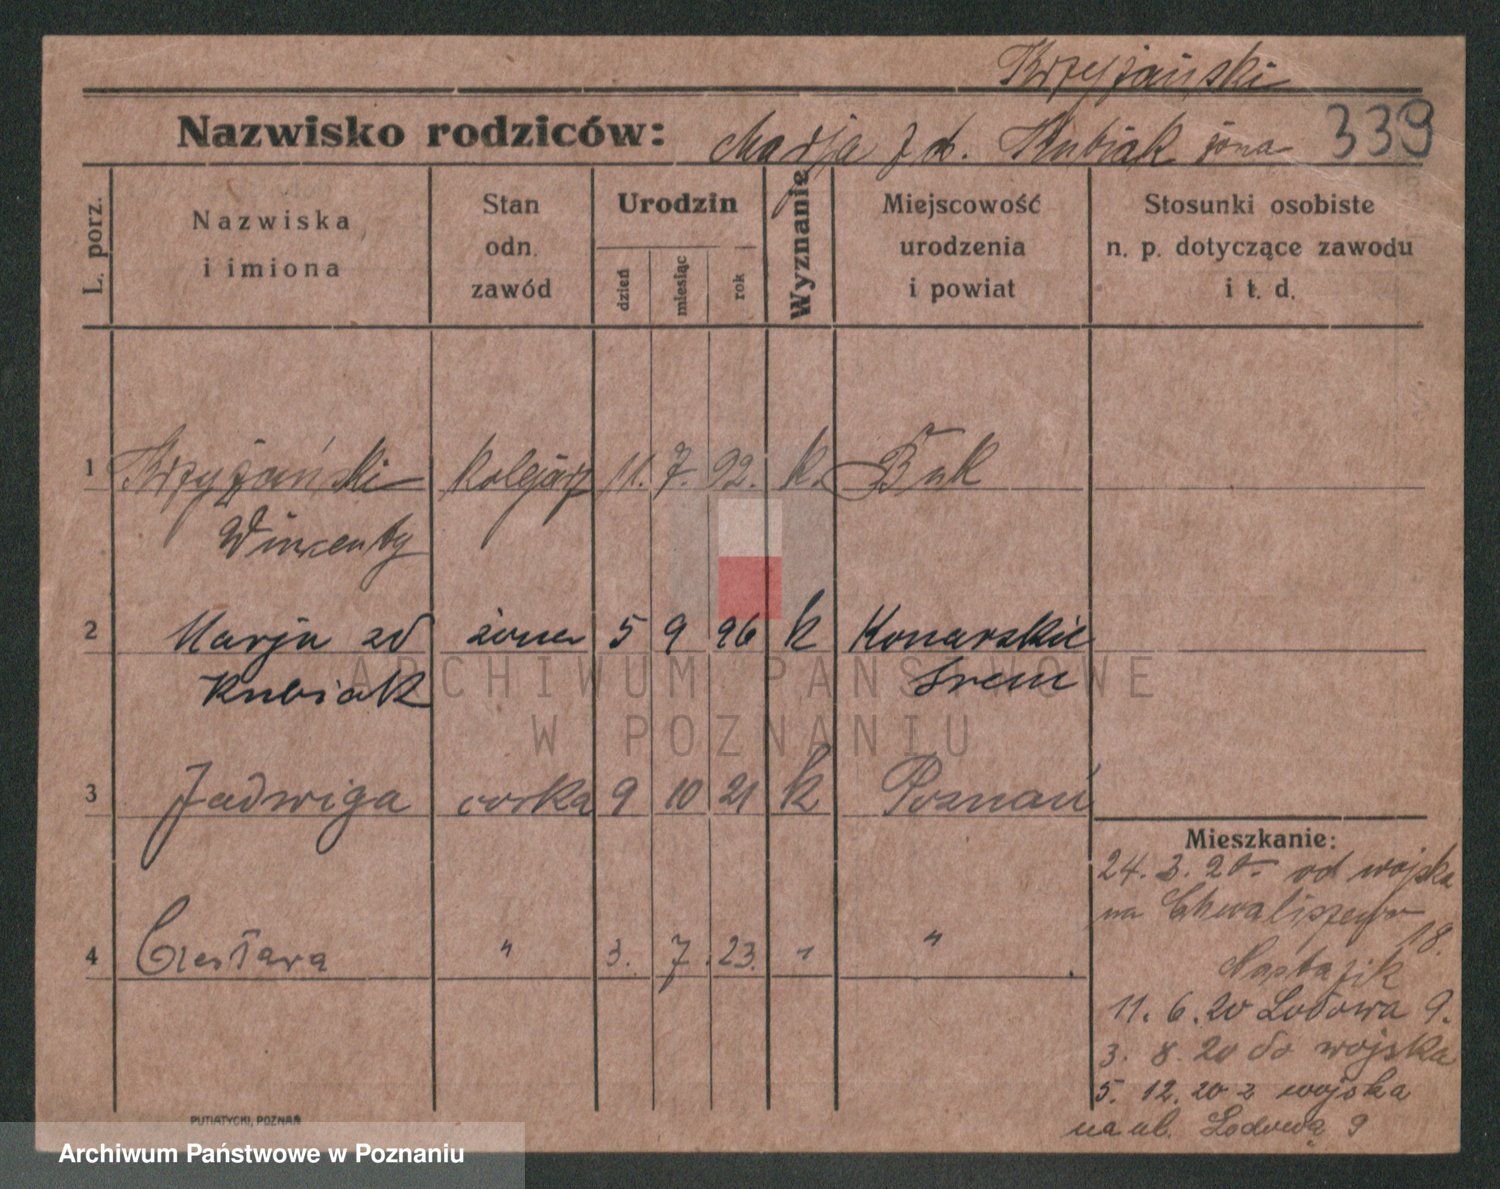 Krzyżański
Nazwisko rodziców: Marja z d. Kubiak żona 339
L. porz.
Nazwiska i imiona
Stan odn. zawód
Urodzin
dzień miesiąc rok
Wyznanie
Miejscowość urodzenia i powiat
Stosunki osobiste n. p. dotyczące zawodu i t. d.
1 Krzyżański kolejarz 11. 7. 92. k. Buk
Wincenty
2 Marja zd żona 5 9 96 k Konarskie
Kubiak Śrem
3 Jadwiga corka 9 10 21 k Poznań
4 Czesława " 3. 7. 23. " "
Mieszkanie:
24. 3. 20. od wojska
na Chwaliszewo
18.
11. 6. 20 Lodowa 9.
3. 8. 20 do wojska
5. 12. 20 z wojska
na ul. Lodową 9
PUTIATYCKI, POZNAŃ
ARCHIWUM PAŃSTWOWE
W POZNANIU
Archiwum Państwowe w Poznaniu